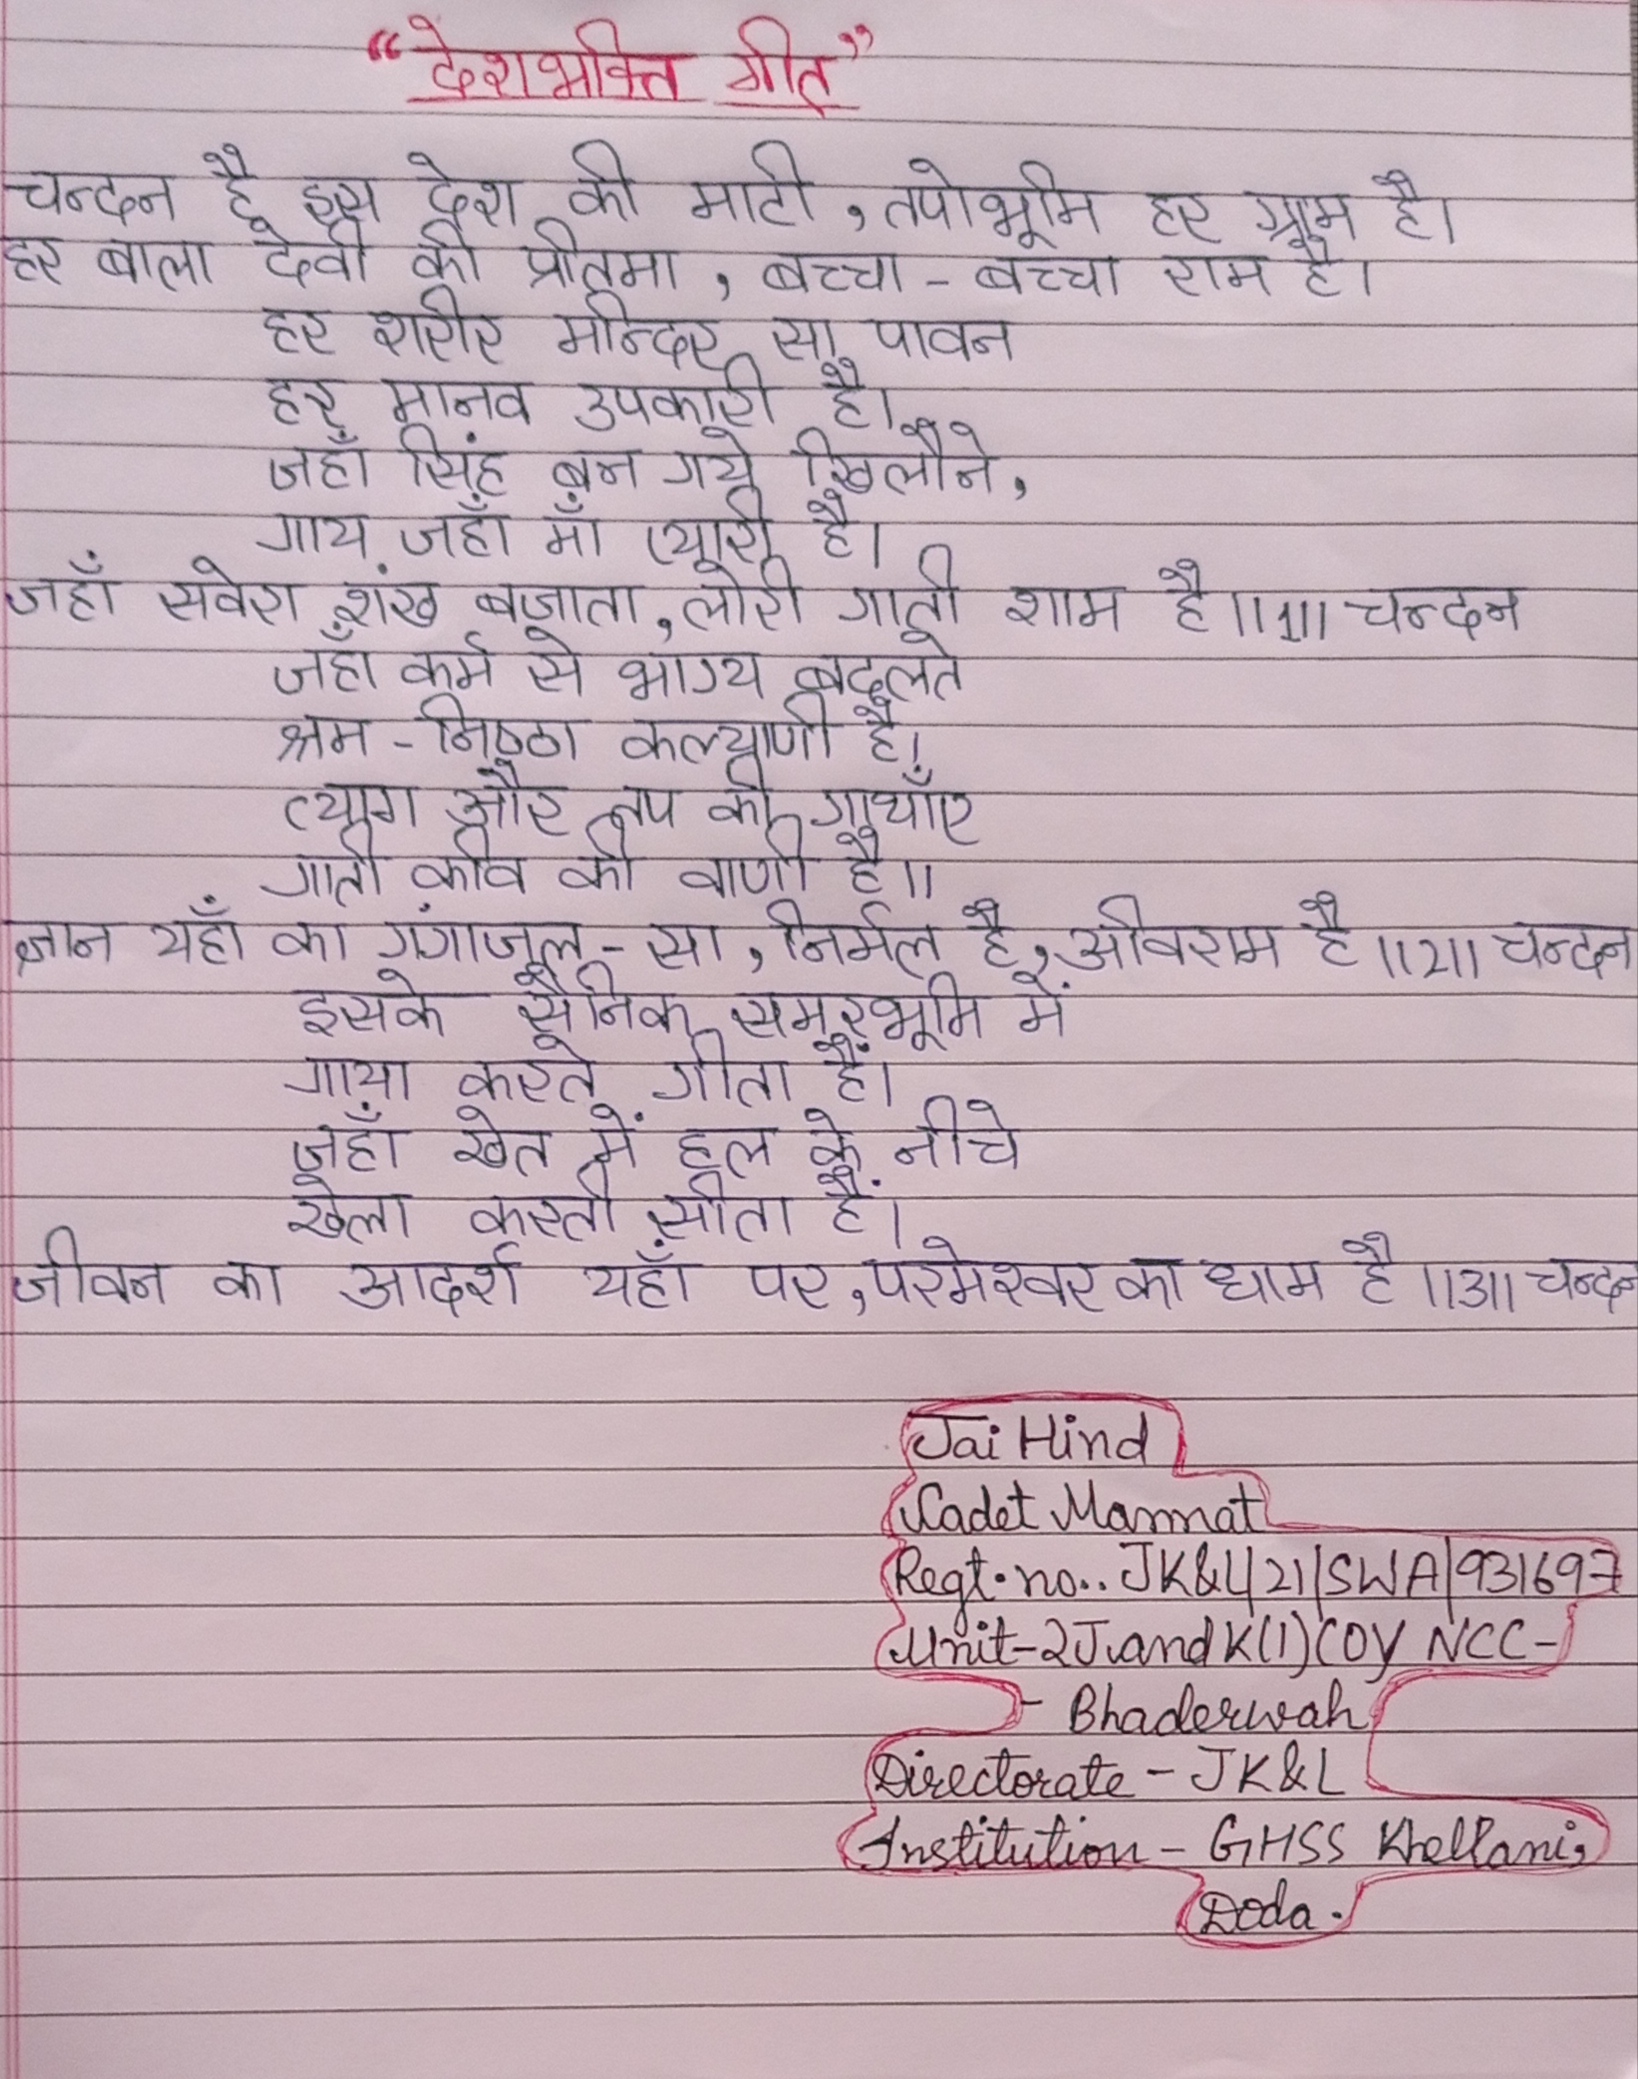 “देशभक्ति गीत”
चन्दन है इस देश की माटी, तपोभूमि हर ग्राम है।
हर बाला देवी की प्रतिमा, बच्चा - बच्चा राम है।
हर शरीर मन्दिर सा पावन
हर मानव उपकारी है।
जहाँ सिंह बन गये खिलौने,
गाय जहाँ माँ प्यारी है।
जहाँ सवेरा शंख बजाता, लोरी गाती शाम है ||1|| चन्दन
जहाँ कर्म से भाग्य बदलते
श्रम - निष्ठा कल्याणी है।
त्याग और तप की गाथाँए
गाती कवि की वाणी है॥
ज्ञान यहाँ का गंगाजल - सा, निर्मल है, अविराम है ||2|| चन्दन
इसके सैनिक समरभूमि में
गाया करते गीता हैं।
जहाँ खेत में हल के नीचे
खेला करती सीता हैं।
जीवन का आदर्श यहाँ पर, परमेश्वर का धाम है ||3|| चन्दन
Jai Hind
Cadet Mannat
Regt. no.. JK&L/21/SWA/931697
Unit-2J.andK(1)COY NCC-
- Bhaderwah
Directorate - JK&L
Institution - GHSS Khellani,
Doda.